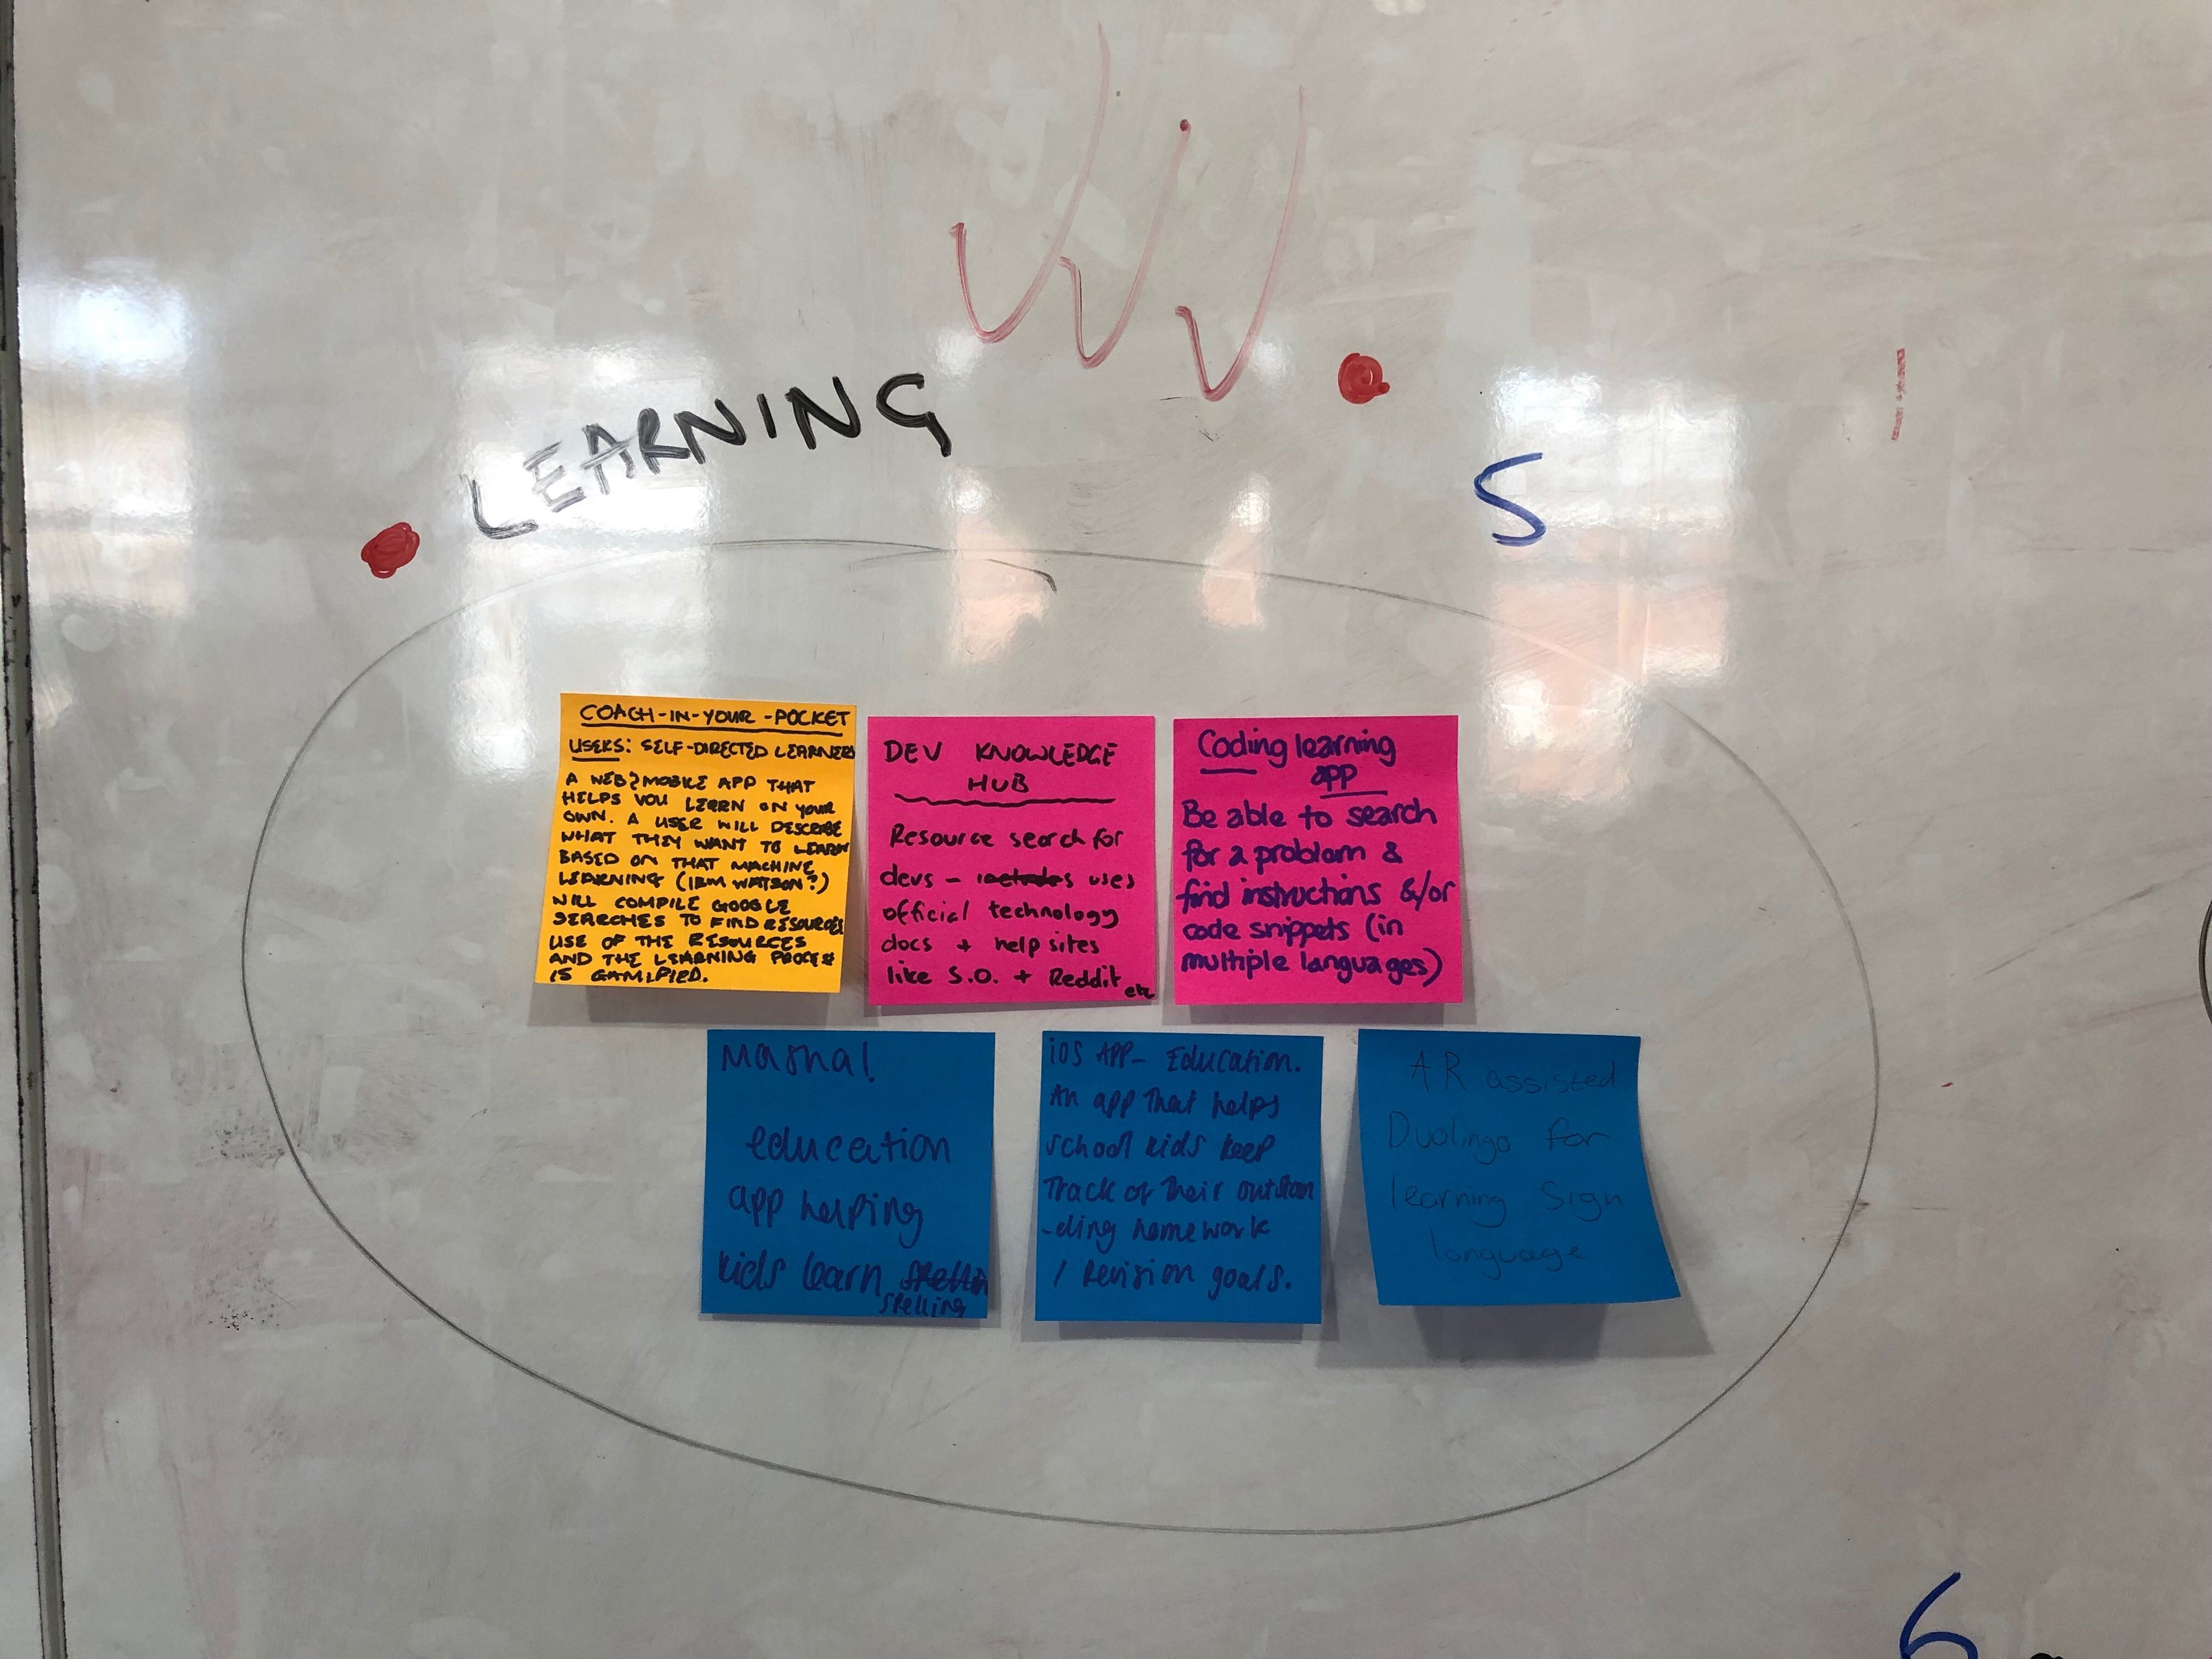 LEARNING
S
COACH-IN-YOUR-POCKET
USERS: SELF-DIRECTED LEARNERS
A WEB/MOBILE APP THAT
HELPS YOU LEARN ON YOUR
OWN. A USER WILL DESCRIBE
WHAT THEY WANT TO LEARN
BASED ON THAT MACHINE
LEARNING (IBM WATSON?)
WILL COMPILE GOOGLE
SEARCHES TO FIND RESOURCES
USE OF THE RESOURCES
AND THE LEARNING PROCESS
IS GAMIFIED.
DEV KNOWLEDGE
HUB
Resource search for
devs – includes uses
official technology
docs + help sites
like S.O. + Reddit etc
Coding learning
app
Be able to search
for a problem &
find instructions &/or
code snippets (in
multiple languages)
education
app helping
kids learn
spelling
iOS APP- Education.
An app that helps
school kids keep
Track of their outstan
-ding homework
/ Revision goals.
AR assisted
Duolingo for
learning Sign
language
6